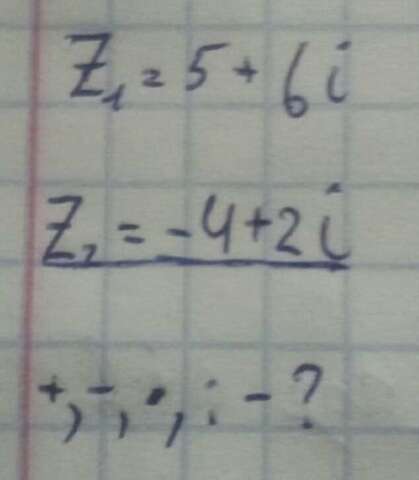 Z₁ = 5 + 6i
Z₂ = -4+2i
+, -, •, : - ?